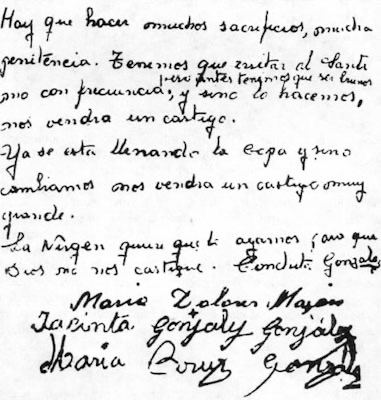 Hay que hacer muchos sacrificios, mucha
penitencia. Tenemos que visitar al Santi
pero antes tenemos que ser buenos
mo con frecuencia, y sino lo hacemos,
nos vendra un castigo.
Ya se está llenando la copa y sino
cambiamos nos vendra un castigo muy
grande.
La Virgen quiere que lo agamos para que
Dios no nos castigue. Conchita Gonzalez
Maria Dolores Mazon
Jacinta Gonzalez Gonzalez
Maria Cruz Gonzalez